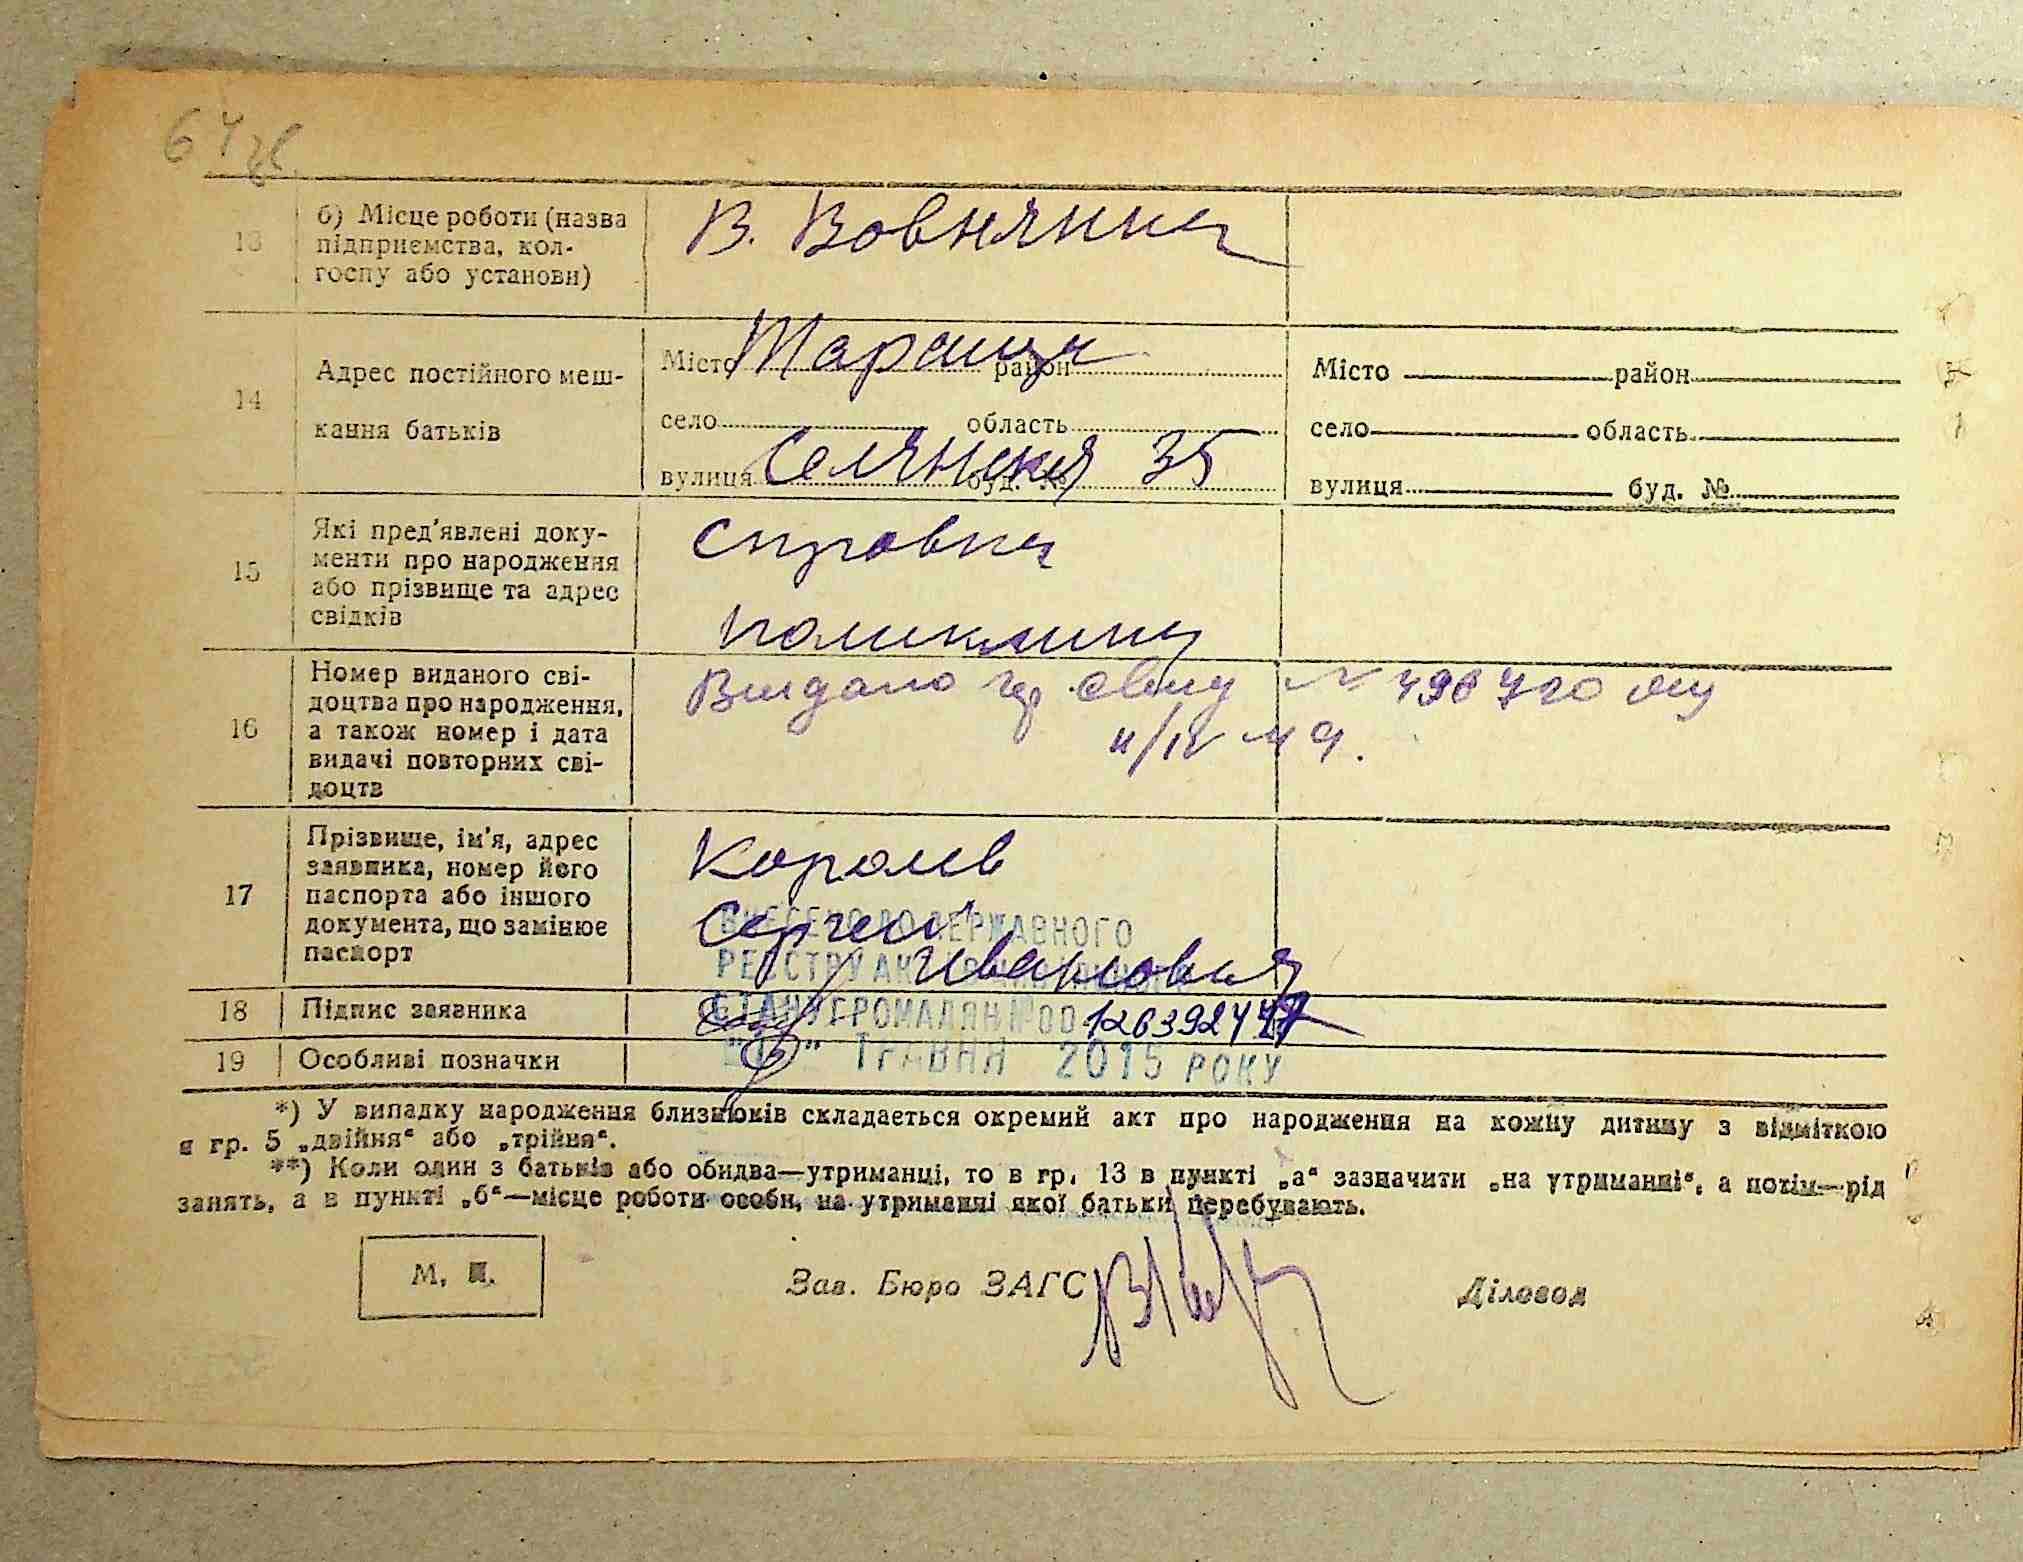 13
б) Місце роботи (назва
підприємства, кол-
госпу або установи)
В. Вовнянка
14
Адрес постійного меш-
кання батьків
Місто Тараща район
село область
вулиця Селянская буд. № 35
Місто район
село область
вулиця буд. №
15
Які пред'явлені доку-
менти про народження
або прізвище та адрес
свідків
Справка
поликлини
16
Номер виданого сві-
доцтва про народження,
а також номер і дата
видачі повторних сві-
доцтв
Видано
17
Прізвище, ім'я, адрес
заявника, номер його
паспорта або іншого
документа, що замінює
паспорт
Королев
Сергей
Иванович
18
Підпис заявника
19
Особливі позначки
ВНЕСЕНО ДО ДЕРЖАВНОГО
РЕЄСТРУ АКТІВ ЦИВІЛЬНОГО
СТАНУ ГРОМАДЯН № 00126392447
ТРАВНЯ 2015 РОКУ
*) У випадку народження близнюків складається окремий акт про народження на кожну дитину з відміткою
в гр. 5 „двійня“ або „трійня“.
**) Коли один з батьків або обидва—утриманці, то в гр. 13 в пункті „а“ зазначити „на утриманні“, а потім—рід
занять, а в пункті „б“—місце роботи особи, на утриманні якої батьки перебувають.
М. П.
Зав. Бюро ЗАГС
Діловод